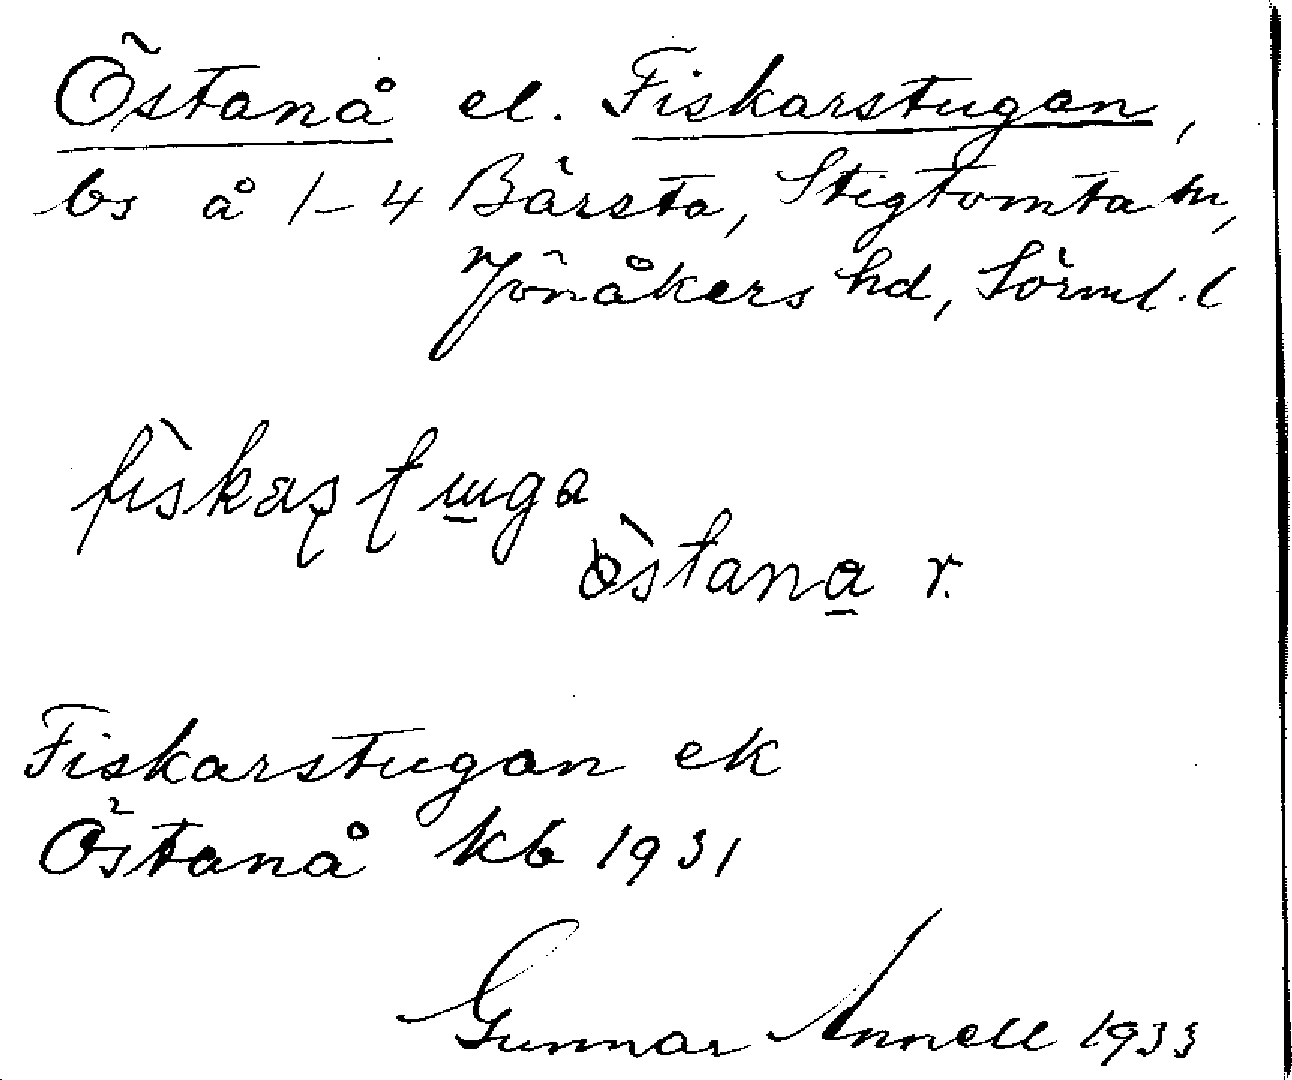 Östanå el. Fiskarstugan,
bs å 1-4 Bärsta, Stigtomta sn,
Jönåkers hd, Sörml. l
fiskaʂʈɯga
östana r.
Fiskarstugan ek
Östanå kb 1931
Gunnar Annell 1933